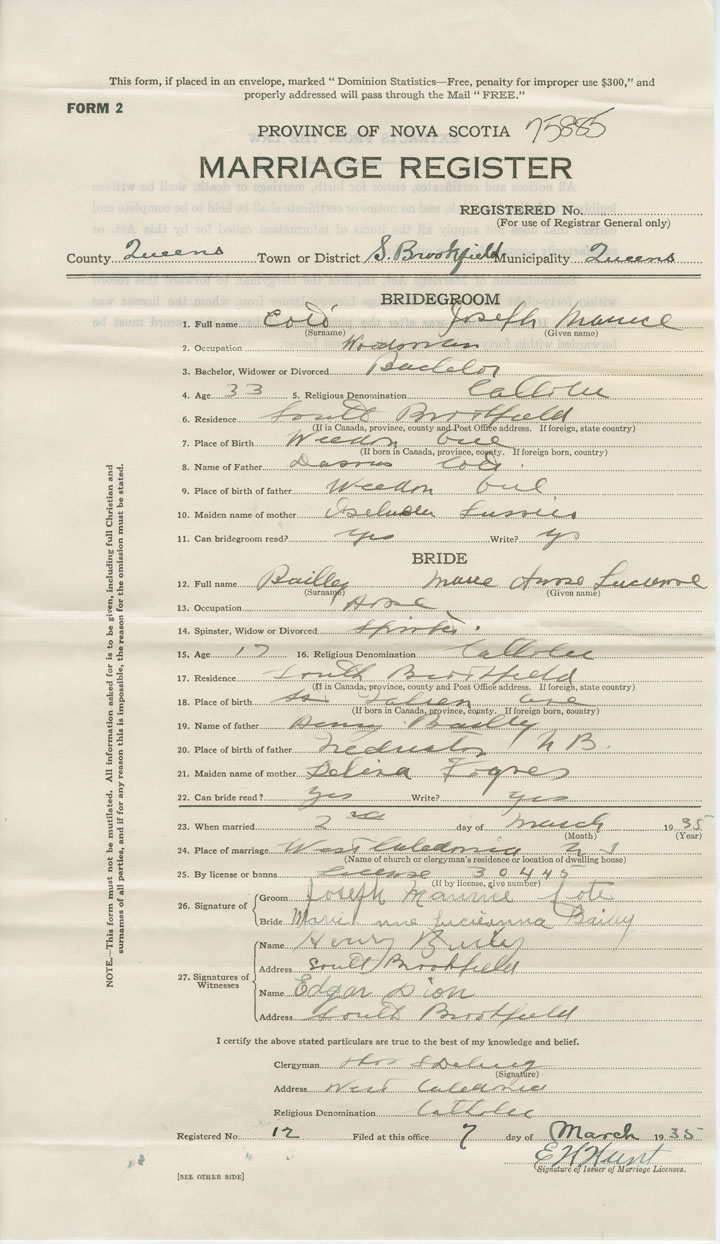 This form, if placed in an envelope, marked " Dominion Statistics—Free, penalty for improper use $300," and
properly addressed will pass through the Mail " FREE."
FORM 2
PROVINCE OF NOVA SCOTIA 75885
MARRIAGE REGISTER
REGISTERED No.
(For use of Registrar General only)
County Queens Town or District S. Brookfield Municipality Queens
BRIDEGROOM
1. Full name Coté Joseph Maurice
(Surname) (Given name)
2. Occupation Woodsman
3. Bachelor, Widower or Divorced Bachelor
4. Age 33 5. Religious Denomination Catholic
6. Residence South Brookfield
(If in Canada, province, county and Post Office address. If foreign, state country)
7. Place of Birth Weedon Que
(If born in Canada, province, county. If foreign born, country)
8. Name of Father Coté
9. Place of birth of father Weedon Que
10. Maiden name of mother
11. Can bridegroom read? yes Write? yes
BRIDE
12. Full name Bailley Marie
(Surname) (Given name)
13. Occupation
14. Spinster, Widow or Divorced Spinster
15. Age 17 16. Religious Denomination Catholic
17. Residence South Brookfield
(If in Canada, province, county and Post Office address. If foreign, state country)
18. Place of birth Que
(If born in Canada, province, county. If foreign born, country)
19. Name of father Henry Bailly
20. Place of birth of father N B.
21. Maiden name of mother Delina
22. Can bride read? yes Write? yes
23. When married 2nd day of March 1935
(Month) (Year)
24. Place of marriage West Caledonia N S
(Name of church or clergyman's residence or location of dwelling house)
25. By license or banns License 30445
(If by license, give number)
26. Signature of
Groom Joseph Maurice Cote
Bride Marie Lucienna Bailey
27. Signatures of Witnesses
Name Henry Bailey
Address South Brookfield
Name Edgar Dion
Address South Brookfield
I certify the above stated particulars are true to the best of my knowledge and belief.
Clergyman
(Signature)
Address West Caledonia
Religious Denomination Catholic
Registered No. 12 Filed at this office 7 day of March 1935
E H Hunt
Signature of Issuer of Marriage Licenses.
[SEE OTHER SIDE]
NOTE.—This form must not be mutilated. All information asked for is to be given, including full Christian and
surnames of all parties, and if for any reason this is impossible, the reason for the omission must be stated.